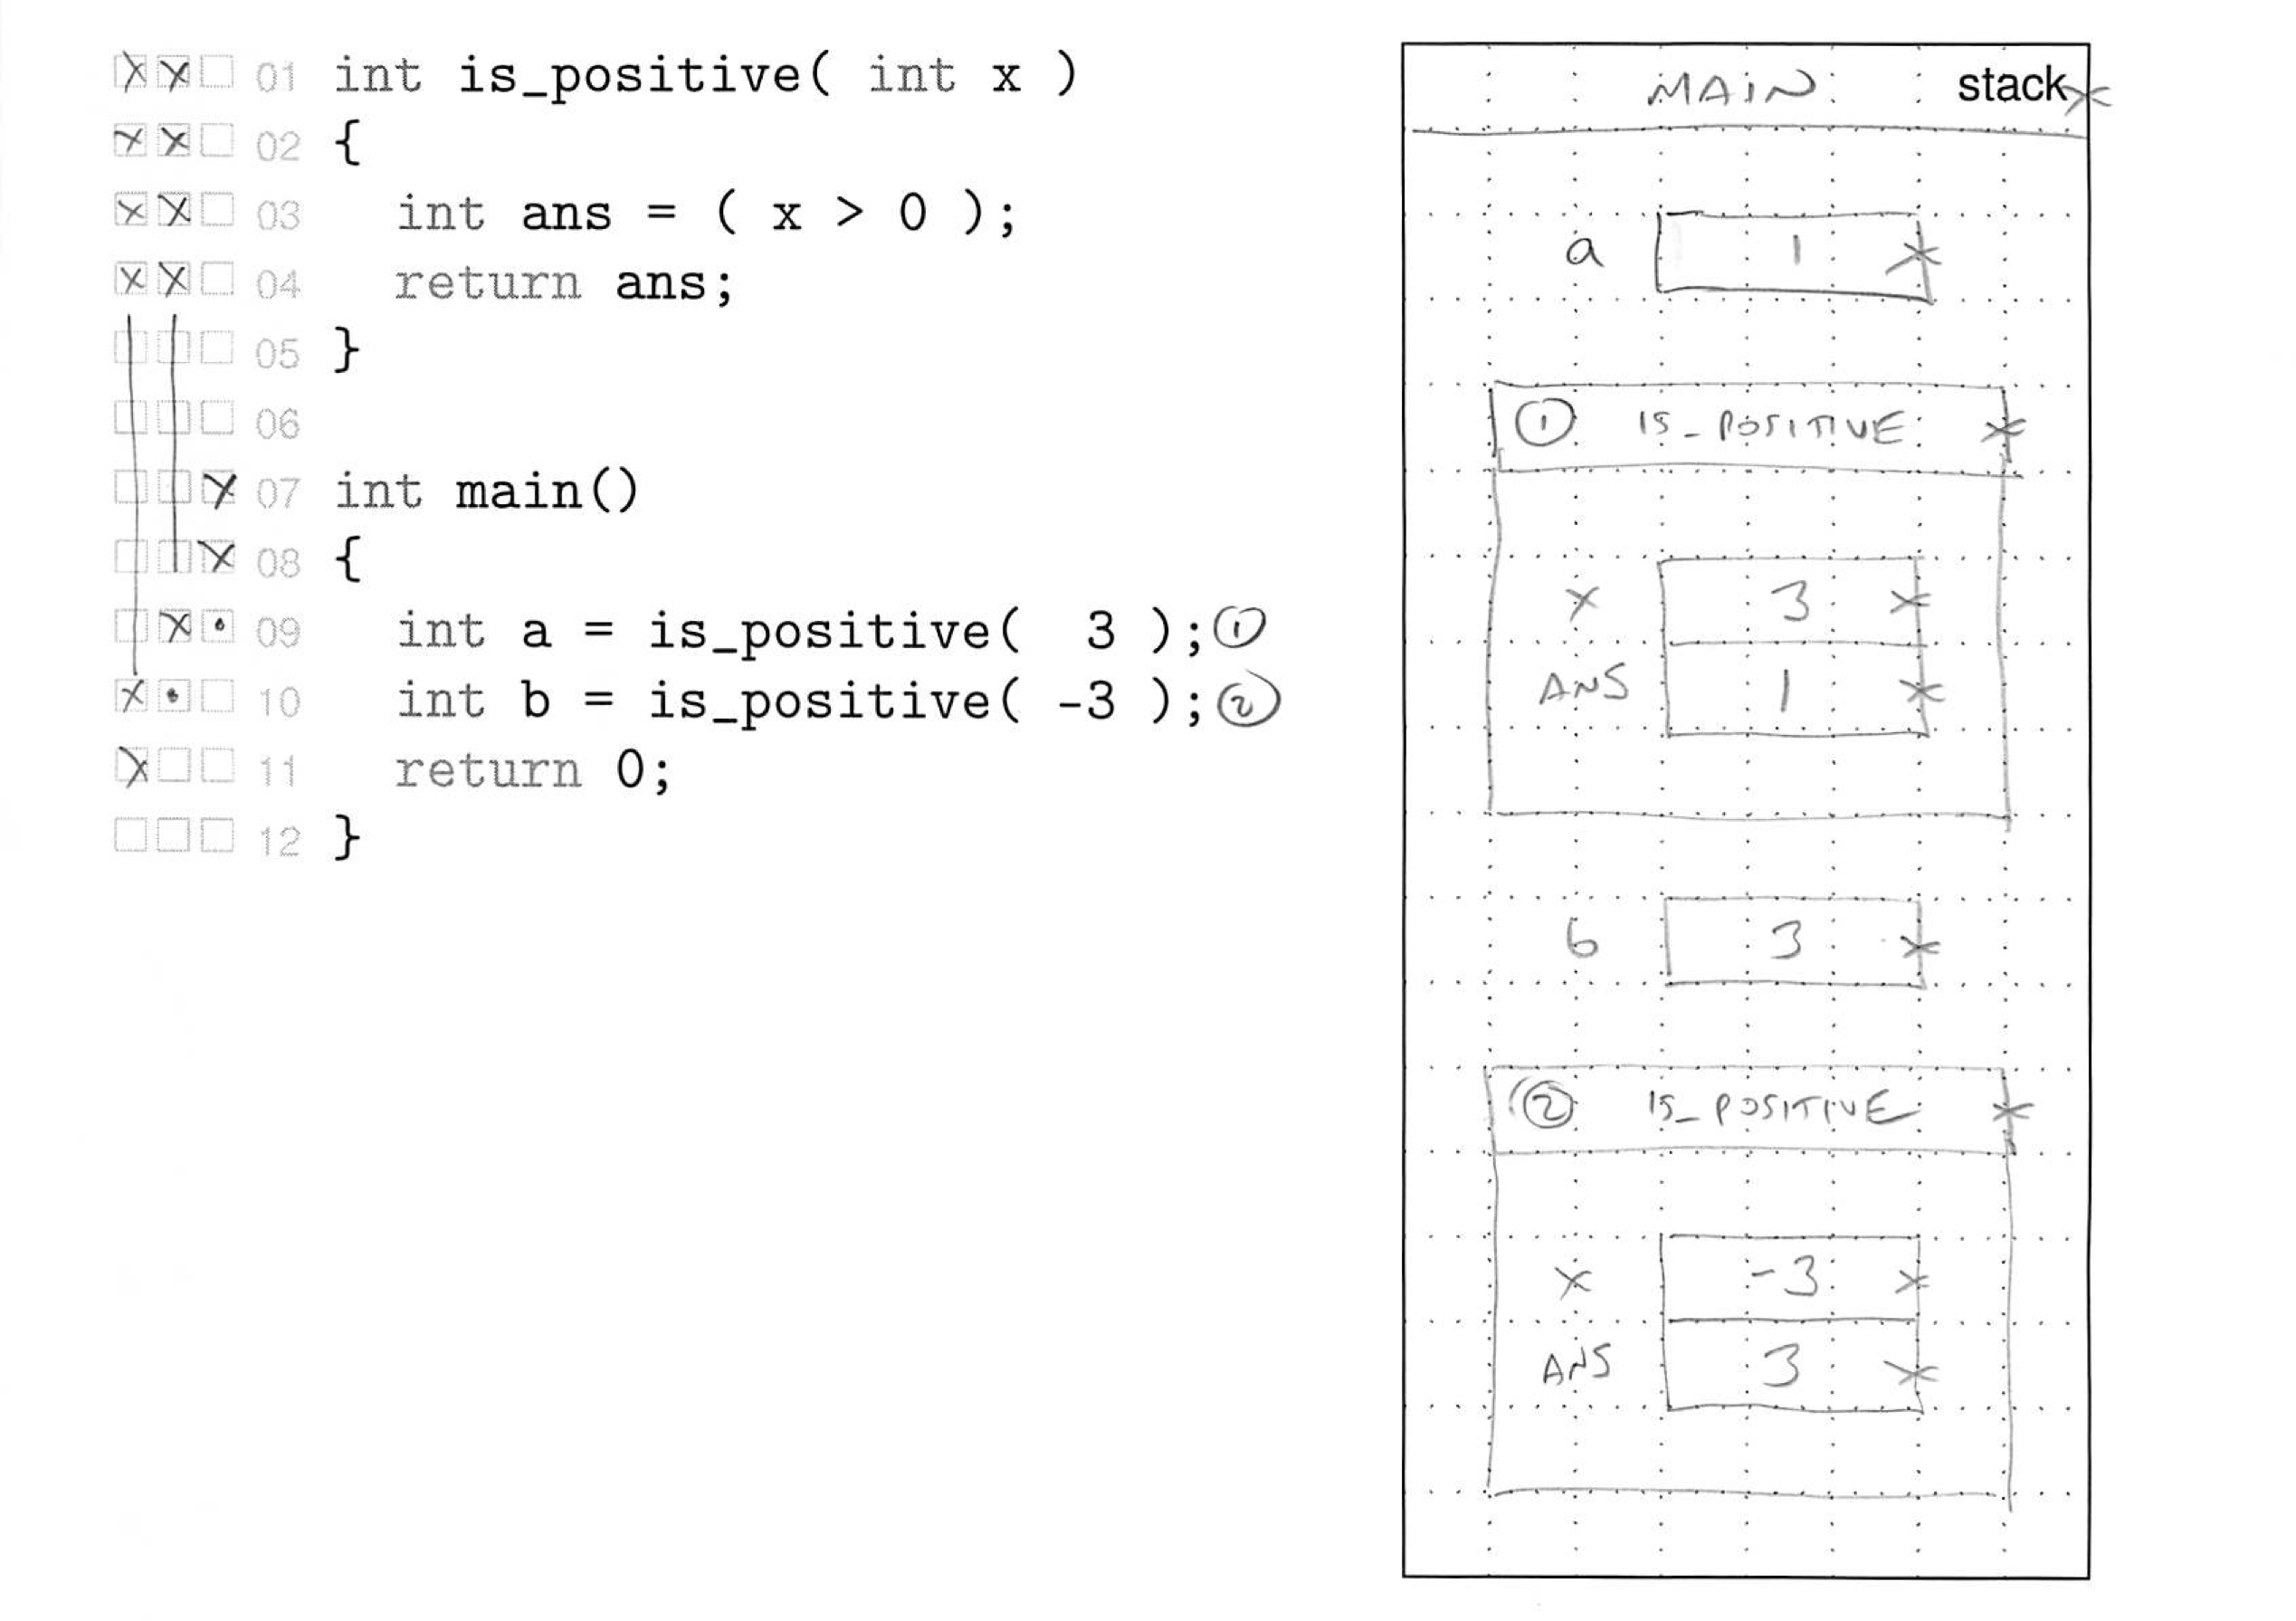 01 int is_positive( int x )
02 {
03 int ans = ( x > 0 );
04 return ans;
05 }
06
07 int main()
08 {
09 int a = is_positive( 3 ); ①
10 int b = is_positive( -3 ); ②
11 return 0;
12 }
MAIN stack
a 1
① IS_POSITIVE
x 3
ANS 1
b 3
② IS_POSITIVE
x -3
ANS 3